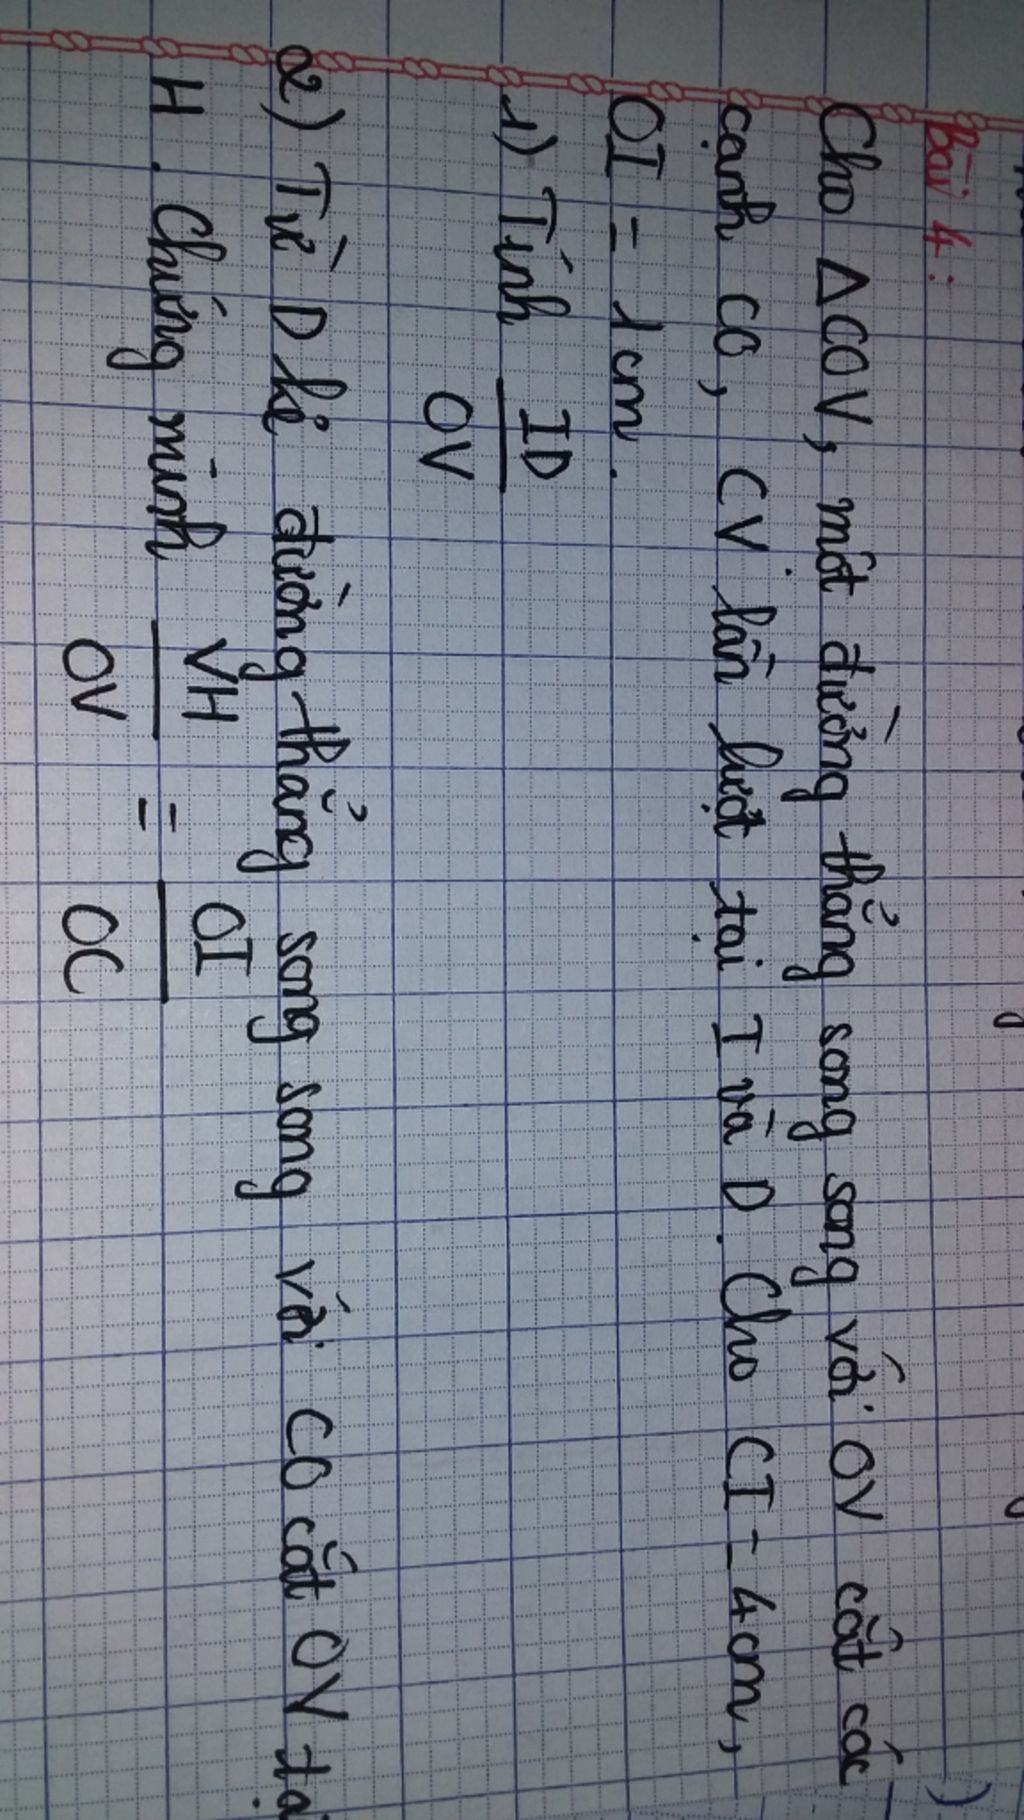 Bài 4:
Cho ΔCOV, một đường thẳng song song với OV cắt các
cạnh CO, CV lần lượt tại I và D. Cho CI = 4cm,
OI = 1cm.
1) Tính ID/OV
2) Từ D kẻ đường thẳng song song với CO cắt OV tại
H. Chứng minh VH/OV = OI/OC